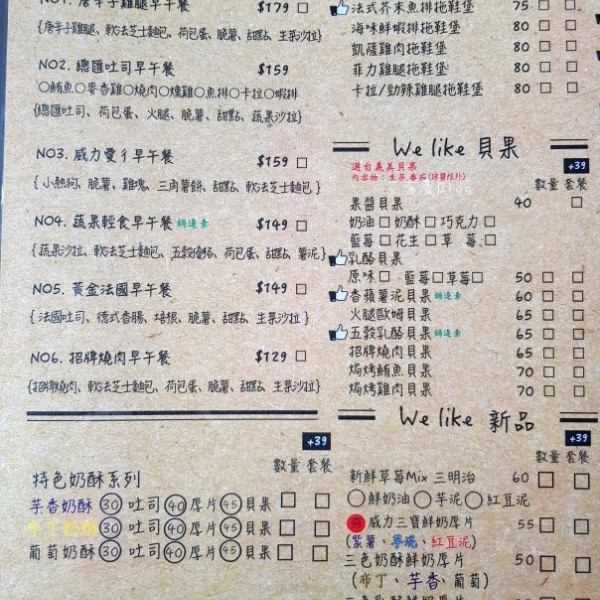 NO1. 唐辛子雞腿早午餐 $179
{唐辛子雞腿、軟法芝士麵包、荷包蛋、脆薯、甜點、生菜沙拉}
NO2. 總匯吐司早午餐 $159
○鮪魚○麥香雞○燒肉○燻雞○魚排○卡拉○蝦排
{總匯吐司、荷包蛋、火腿、脆薯、甜點、蔬果沙拉}
NO3. 威力愛ㄔ早午餐 $159
{小熱狗、脆薯、雞塊、三角薯餅、甜點、軟法芝士麵包}
NO4. 蔬果輕食早午餐 鍋邊素 $149
{蔬果沙拉、軟法芝士麵包、五穀優格、荷包蛋、甜點、薯泥}
NO5. 黃金法國早午餐 $149
{法國吐司、德式香腸、培根、脆薯、甜點、生菜沙拉}
NO6. 招牌燒肉早午餐 $129
{招牌燒肉、軟法芝士麵包、荷包蛋、脆薯、甜點、生菜沙拉}
+39
數量 套餐
特色奶酥系列
芋香奶酥 30 吐司 40 厚片 45 貝果
布丁奶酥 30 吐司 40 厚片 45 貝果
葡萄奶酥 30 吐司 40 厚片 45 貝果
法式芥末魚排拖鞋堡 75
海味鮮蝦排拖鞋堡 80
凱薩雞肉拖鞋堡 80
菲力雞腿拖鞋堡 80
卡拉/勁辣雞腿拖鞋堡 80
We like 貝果
+39
選自義美貝果
內容物：生菜.番茄(抹醬除外)
數量 套餐
果醬貝果 40
奶油 奶酥 巧克力
藍莓 花生 草莓
乳酪貝果
原味 藍莓 草莓 50
香蘋薯泥貝果 鍋邊素 60
火腿歐姆貝果 65
五穀乳酪貝果 鍋邊素 65
招牌燒肉貝果 65
焗烤鮪魚貝果 70
焗烤雞肉貝果 70
We like 新品
+39
數量 套餐
新鮮草莓Mix 三明治 60
○鮮奶油○芋泥○紅豆泥
威力三寶鮮奶厚片 55
(紫薯、麥塊、紅豆泥)
三色奶酥鮮奶厚片 50
(布丁、芋香、葡萄)